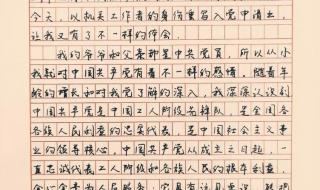 今天，以机关工作者的身份重启入党申请书，
让我又有了不一样的体会。
我的爷爷和父亲都是中共党员，所以从小
我就对中国共产党有着不一样的感情。随着年
龄的增长和对我党了解的深入，我深深认识到
中国共产党是中国工人阶级先锋队，是全国各
各族人民利益的忠实代表，是中国社会主义事
业的领导核心，中国共产党从成立之日起，一
直忠诚代表工人阶级和各族人民的根本利益，